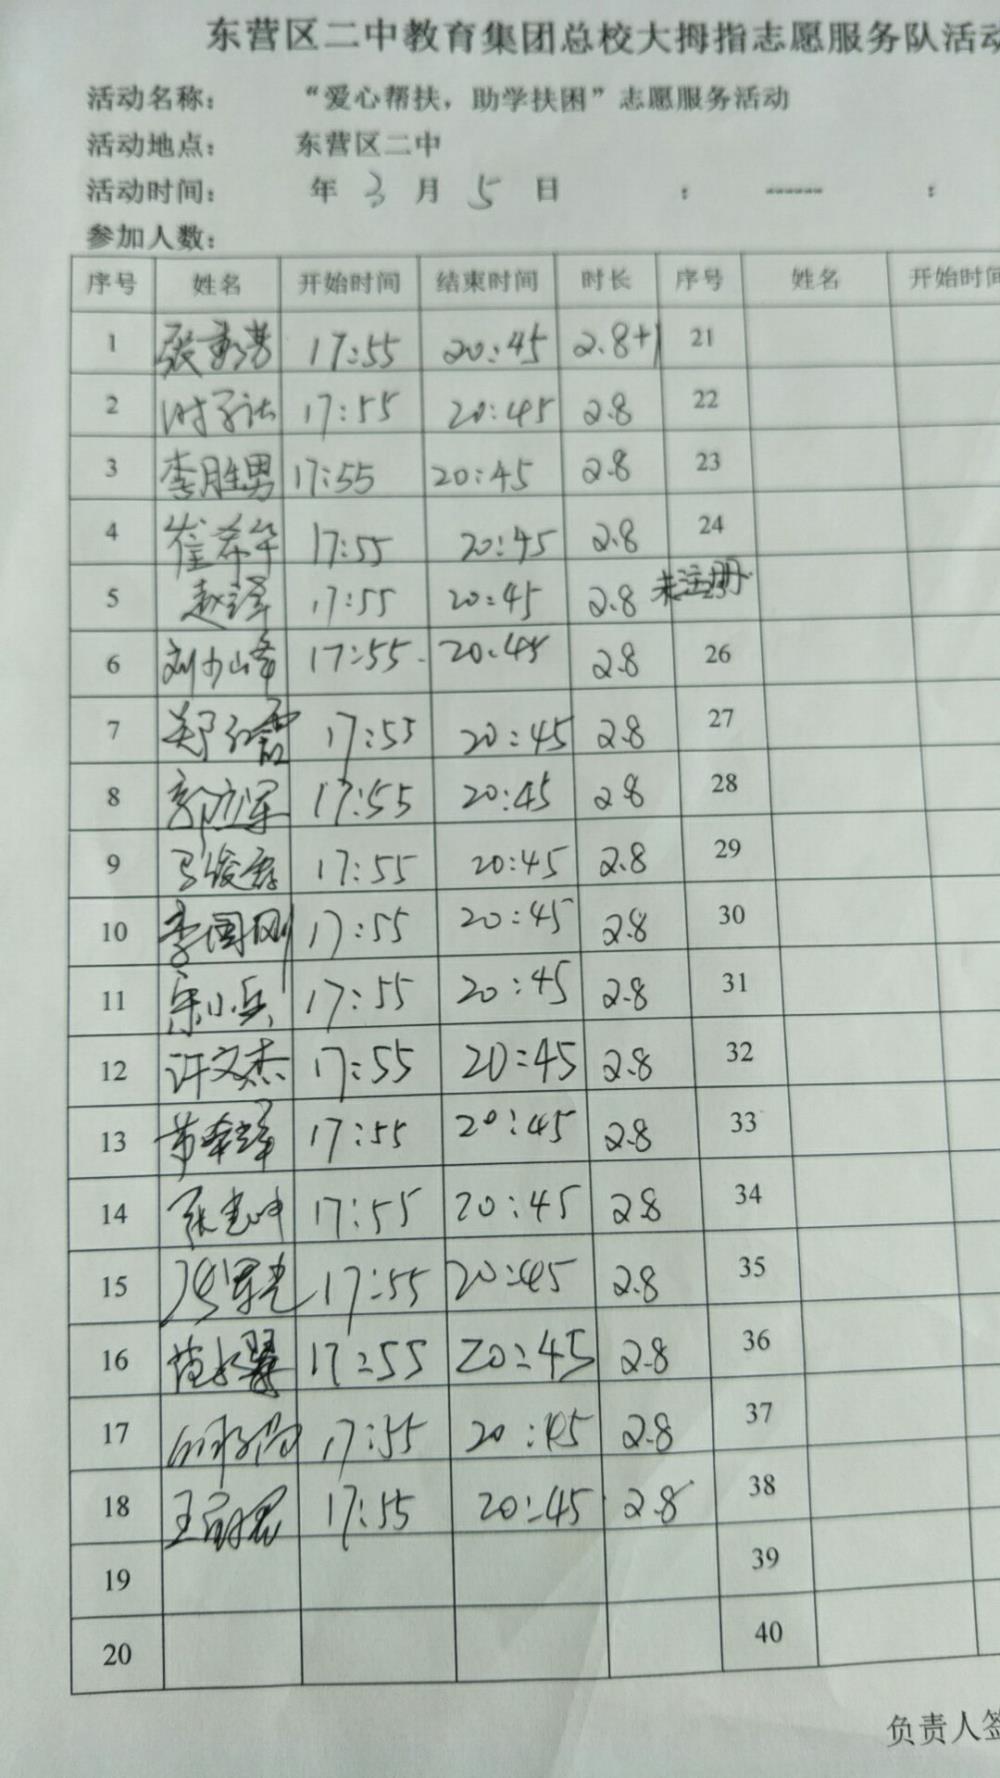 东营区二中教育集团总校大拇指志愿服务队活动
活动名称： “爱心帮扶，助学扶困”志愿服务活动
活动地点： 东营区二中
活动时间： 年 3 月 5 日 ： ------ ：
参加人数：
序号 姓名 开始时间 结束时间 时长 序号 姓名 开始时间
1 17:55 20:45 2.8+1 21
2 17:55 20:45 2.8 22
3 李胜男 17:55 20:45 2.8 23
4 崔希华 17:55 20:45 2.8 24
5 赵泽 17:55 20:45 2.8 未注册
6 刘少峰 17:55 20:45 2.8 26
7 17:55 20:45 2.8 27
8 郭立军 17:55 20:45 2.8 28
9 马俊磊 17:55 20:45 2.8 29
10 李国刚 17:55 20:45 2.8 30
11 宋小兵 17:55 20:45 2.8 31
12 许文杰 17:55 20:45 2.8 32
13 17:55 20:45 2.8 33
14 17:55 20:45 2.8 34
15 17:55 20:45 2.8 35
16 17:55 20:45 2.8 36
17 17:55 20:45 2.8 37
18 17:55 20:45 2.8 38
19 39
20 40
负责人签